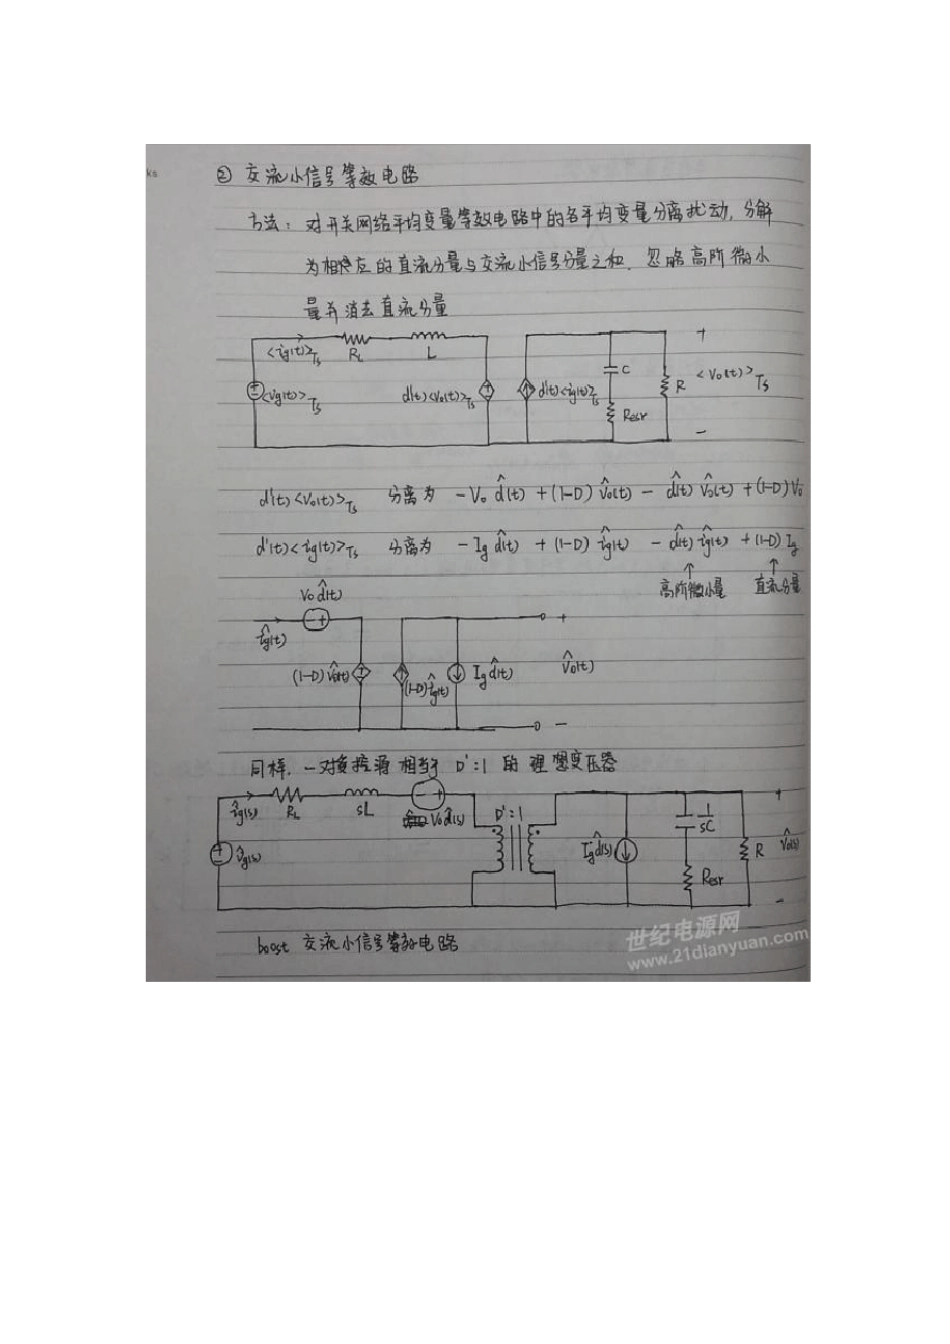 ks
② 交流小信号等效电路
方法：对开关网络平均变量等效电路中的各平均变量分离扰动，分解
为相应的直流分量与交流小信号分量之和，忽略高阶微小
量并消去直流分量
<ig(t)>Ts RL L + 
<vg(t)>Ts d'(t)<vo(t)>Ts d'(t)<ig(t)>Ts C Resr R <vo(t)>Ts
−
d'(t)<vo(t)>Ts 分离为 −Vo d̂(t) + (1−D) v̂o(t) − d̂(t) v̂o(t) + (1−D)Vo
d'(t)<ig(t)>Ts 分离为 −Ig d̂(t) + (1−D) îg(t) − d̂(t) îg(t) + (1−D) Ig
↑ ↑
高阶微小量 直流分量
Vo d̂(t)
− + +
îg(t)
(1−D) v̂o(t) (1−D) îg(t) Ig d̂(t) v̂o(t)
−
同样，一对受控源相当于 D':1 的理想变压器
îg(s) RL sL − + Vo d̂(s) D':1 1/sC +
v̂g(s) Ig d̂(s) Resr R v̂o(s)
−
boost 交流小信号等效电路
世纪电源网
www.21dianyuan.com